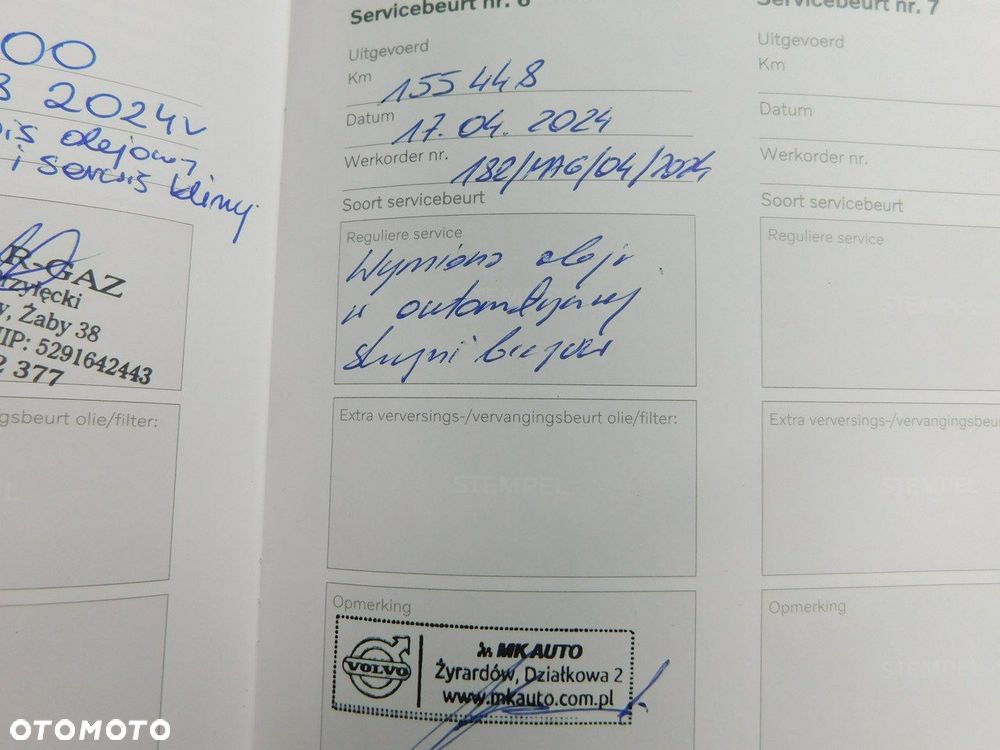 00
3 2024r
olejowy
i serwis klimy
R-GAZ
Żaby 38
NIP: 5291642443
2 377
gsbeurt olie/filter:
Servicebeurt nr. 6
Uitgevoerd
Km 155 448
Datum 17.04.2024
Werkorder nr. 182/MAG/04/2024
Soort servicebeurt
Reguliere service
Wymiana oleju
w automatycznej
skrzyni biegów
Extra verversings-/vervangingsbeurt olie/filter:
STEMPEL
Opmerking
VOLVO
MK AUTO
Żyrardów, Działkowa 2
www.mkauto.com.pl
Servicebeurt nr. 7
Uitgevoerd
Km
Datum
Werkorder nr.
Soort servicebeurt
Reguliere service
STEMPEL
Extra verversings-/vervangingsbeu
STEMPEL
Opmerking
STEMPEL
OTOMOTO